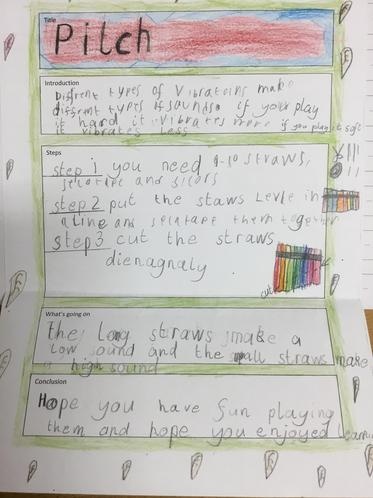 Title
Pitch
Introduction
Diffrent types of Vibrateins make
diffrent types of sounds if you play
it hard it vibrates more if you play it soft
it vibrates less
Steps
step 1 you need 9-10 straws,
selotape and sicors
step 2 put the staws Levle in
a line and selatape them together
step 3 cut the straws
dienagnaly
cut
What's going on
the long straws make a
low sound and the small straws make
a high sound
Conclusion
Hope you have fun playing
them and hope you enjoyed